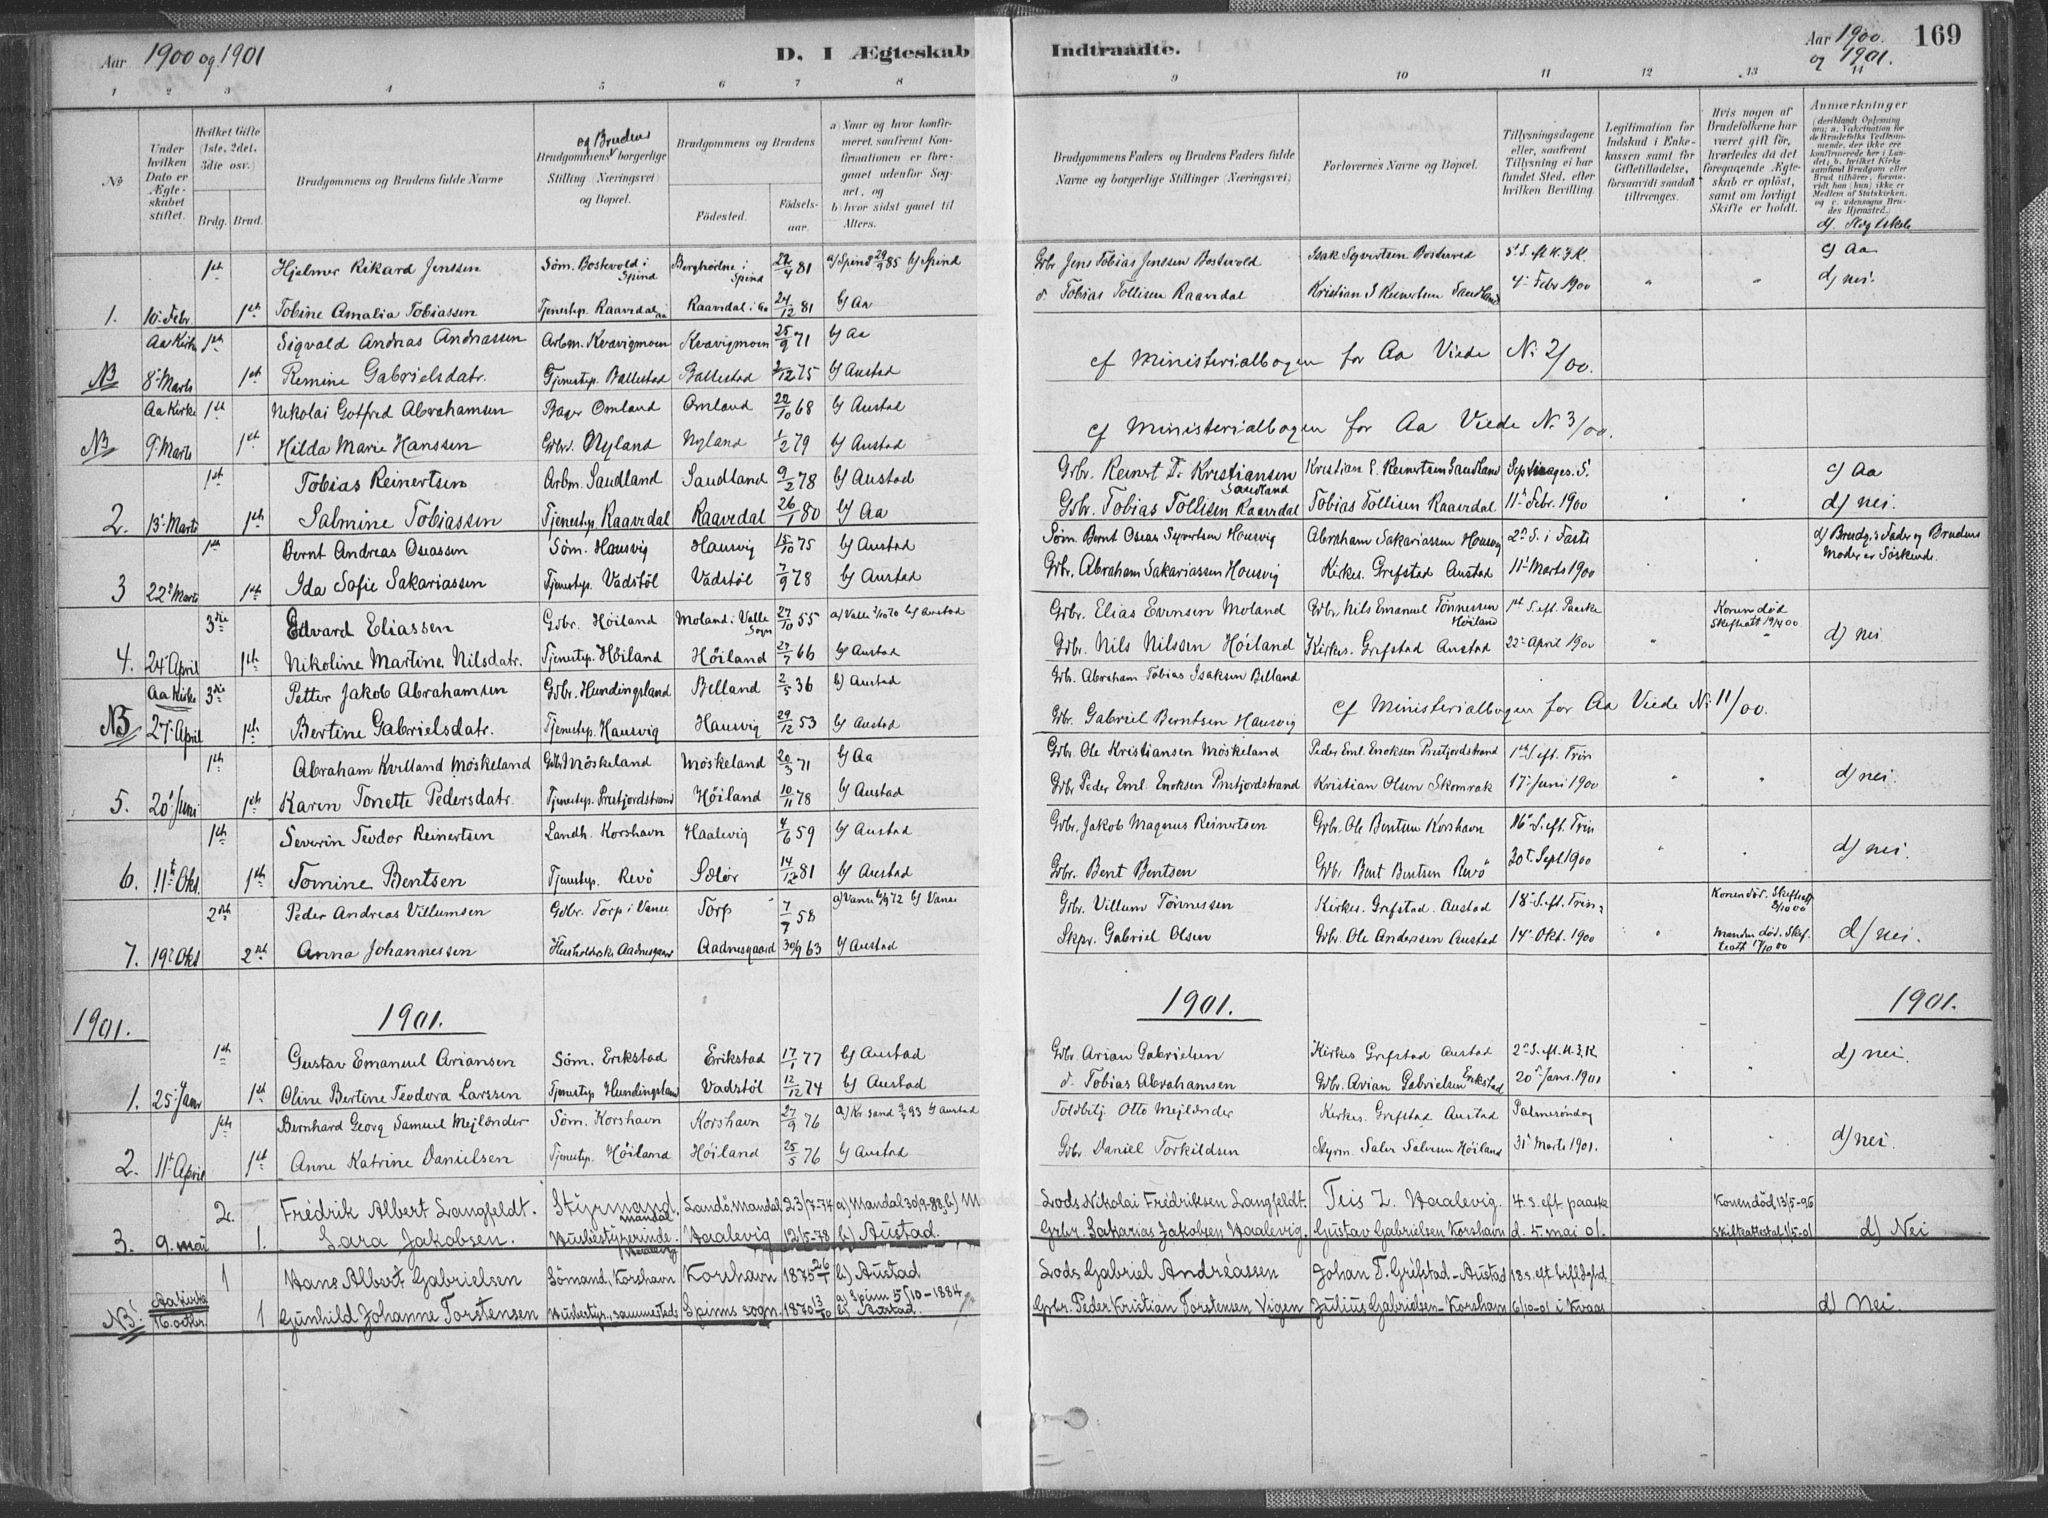 Aar 1900 og 1901 D. I Ægteskab Indtraadte. Aar 1900. og 1901. 169
1 2 3 4 5 6 7 8 9 10 11 12 13 14
No
Under hvilken Dato er Ægteskabet stiftet.
Hvilket Gifte (1ste, 2det, 3die osv.)
Brdg. Brud.
Brudgommens og Brudens fulde Navne
Brudgommens og Brudens borgerlige Stilling (Næringsvei) og Bopæl.
Brudgommens og Brudens
Fødested. Fødselsaar.
a) Naar og hvor konfirmeret, saafremt Konfirmationen er foregaaet udenfor Sognet, og
b) hvor sidst gaaet til Alters.
Brudgommens Faders og Brudens Faders fulde Navne og borgerlige Stillinger (Næringsvei)
Forlovernes Navne og Bopæl.
Tillysningsdagene eller, saafremt Tillysning ei har fundet Sted, efter hvilken Bevilling.
Legitimation for Indskud i Enkekassen samt for Giftetilladelse, forsaavidt saadan tiltrænges.
Hvis nogen af Brudefolkene har været gift før, hvorledes da det foregaaende Ægteskab er opløst, samt om lovligt Skifte er holdt.
Anmærkninger (deriblandt Oplysning om: a. Vakcination for de Brudefolks Vedkommende, der ikke ere konfirmerede her i Landet; b. hvilket Kirkesamfund Brudgom eller Brud tilhører, forsaavidt han (hun) ikke er Medlem af Statskirken, og c. udensogns Brudes Hjemsted.)
d) Slegtskab
1st Hjelmer Rikard Jenssen Søm. Bostevold i Spind Berghøilne i Spind 22/4 81 a) Spind 29/9 85 b) Spind Gbr Jens Tobias Jenssen Bostevold Isak Syvertsen Bostevold 5' S. eft H.3.K. c) Aa
1. 10' Febr. 1st Tobine Amalia Tobiassen Tjenestep. Raavrdal Aa Raavrdal i Aa 24/12 81 b) Aa d. Tobias Tollisen Raavrdal Kristian S Reinertsen Sandland 4' Febr 1900 " " d) nei.
Aa Kirke 1st Sigvald Andreas Andreassen Arbm. Kvavigmoen Kvavigmoen 25/9 71 b) Aa
NB 8' Marts 1st Remine Gabrielsdatr. Tjenestep. Ballestad Ballestad 2/12 75 b) Austad cf Ministerialbogen for Aa Viede No 2/00.
Aa Kirke 1st Nikolai Gotfred Abrahamsen Bager Omland Omland 20/10 68 b) Austad
NB 9' Marts 1st Hilda Marie Hanssen Gbr. Nyland Nyland 1/2 79 b) Austad cf Ministerialbogen for Aa Viede No 3/00.
1st Tobias Reinertsen Arbm. Sandland Sandland 9/2 78 b) Austad Gbr. Reinert T. Kristiansen Sandland Kristian E. Reinertsen Sandland Septuages. S. c) Aa
2. 13' Marts 1st Salmine Tobiassen Tjenestep. Raavrdal Raavrdal 26/1 80 b) Aa Gbr. Tobias Tollisen Raavrdal Tobias Tollisen Raavrdal 11' Febr. 1900 " " d) nei.
1st Bernt Andreas Oseassen Søm. Hausvig Hausvig 15/10 75 b) Austad Søm. Bernt Oseas Syvertsen Hausvig Abraham Sakariassen Hausvig 2' S. i Faste d) Brudg.s Fader og Brudens
3 22' Marts 1st Ida Sofie Sakariassen Tjenestep. Vadstøl Vadstøl 7/9 78 b) Austad Gbr. Abraham Sakariassen Hausvig Kirkes. Grefstad Austad 11' Marts 1900 Moder er Søskende.
3die Edvard Eliassen Gbr. Høiland Moland i Valle Sogn 27/10 55 a) Valle 1/10 70 b) Austad Gbr. Elias Evensen Moland Gbr Nils Emanuel Tønnessen Høiland 1st S. eft. Paaske Konen død Skifteatt 19/4 00
4. 24' April 1st Nikoline Martine Nilsdatr. Tjenestep. Høiland Høiland 27/7 66 b) Austad Gbr. Nils Nilssen Høiland Kirkes. Grefstad Austad 22' April 1900 " " d) nei.
Aa Kirke 3die Petter Jakob Abrahamsen Gbr. Hundingsland Belland 2/5 36 b) Austad Gbr. Abraham Tobias Isaksen Belland
NB 27' April 1st Bertine Gabrielsdatr. Tjenestep. Hausvig Hausvig 29/12 53 b) Austad Gbr. Gabriel Berntsen Hausvig cf Ministerialbogen for Aa Viede No 11/00.
1st Abraham Kvilland Møskeland Gbr. Møskeland Møskeland 20/3 71 b) Aa Gbr. Ole Kristiansen Møskeland Peder Eml. Enoksen Prestfjordstrand 1st S. eft. Trin
5. 20' Juni 1st Karen Tonette Pedersdatr. Tjenestep. Prestfjordstrand Høiland 10/11 78 b) Austad Gbr Peder Eml. Enoksen Prestfjordstrand Kristian Olsen Skomrak 17' Juni 1900 " " d) nei.
1st Severin Teodor Reinertsen Landh. Korshavn Haalevig 4/6 59 b) Austad Gbr. Jakob Magnus Reinertsen Gbr. Ole Bentsen Korshavn 16' S. eft. Trin
6. 11' Okt. 1st Tomine Bentsen Tjenestep. Revø Selør 14/12 81 b) Austad Gbr. Bent Bentsen Gbr Bent Bentsen Revø 30' Sept 1900 " " d) nei.
2det Peder Andreas Villumsen Gbr. Torp i Vanse Torp 7/7 58 a) Vanse 72 b) Vanse Gbr. Villum Tønnessen Kirkes. Grefstad. Austad 18' S. eft. Trin Konen død. Skifteatt 8/10 00
7. 19' Okt 2det Anna Johannessen Husholderske Aadnesgaard Aadnesgaard 30/9 63 b) Austad Skpr. Gabriel Olsen Gbr. Ole Andersen Austad 14' Okt. 1900 " Manden død. Skifteatt 17/10 00 d) nei.
1901. 1901. 1901. 1901.
1st Gustav Emanuel Ariansen Søm. Erikstad Erikstad 17/1 77 b) Austad Gbr. Arian Gabrielsen Kirkes Grefstad Austad 2' S. eft. H.3.K d) nei.
1. 25' Janr 1st Oline Bertine Teodora Larssen Tjenestep Hundingsland Vadstøl 12/12 74 b) Austad d. Tobias Abrahamsen Gbr. Arian Gabrielsen Erikstad 20' Janr. 1901
1st Bernhard Georg Samuel Mejlænder Søm. Korshavn Korshavn 27/9 76 a) Kr.sand 9/4 93 b) Austad Toldbetj Otto Mejlænder Kirkes. Grefstad Austad Palmesøndag
2. 11' April 1st Anne Katrine Danielsen Tjenestep. Høiland Høiland 25/5 76 b) Austad Gbr Daniel Torkildsen Styrm. Saler Salvesen Høiland 31' Marts 1901. " " d) nei.
2. Fredrik Albert Langfeldt. Styrmand, Mandal Sandø, Mandal 23/7-74 a) Mandal 30/9-88, b) M Lods Nikolai Fredriksen Langfeldt. Teis Z. Haalevig. 4. s. eft paaske Konen død 13/5-96
3. 9. mai 1. Sara Jakobsen. Husbestyrerinde. (Haalevig) Haalevig 12/5-78 b) Austad. Grbr. Zakarias Jakobsen Haalevig. Gustav Gabrielsen Korshavn d. 5. mai 01. Skifteattest 1/5-01 d) Nei
1 Hans Albert Gabrielsen Sømand, Korshavn Korshavn 1875 26/1 b) Austad Lods Gabriel Andréassen Johan T. Grefstad - Austad 18 s. eft
NB! Aa Kirke 16. octbr. 1 Gunhild Johanne Torstensen Husbestyr., sammesteds Spinns sogn. 1870 13/10 a) Spinn 5/10-1884 b) Austad. Grbr. Peder Kristian Torstensen Vigen Julius Gabrielsen - Korshavn 6/10-01 i Kvaas d) Nei.